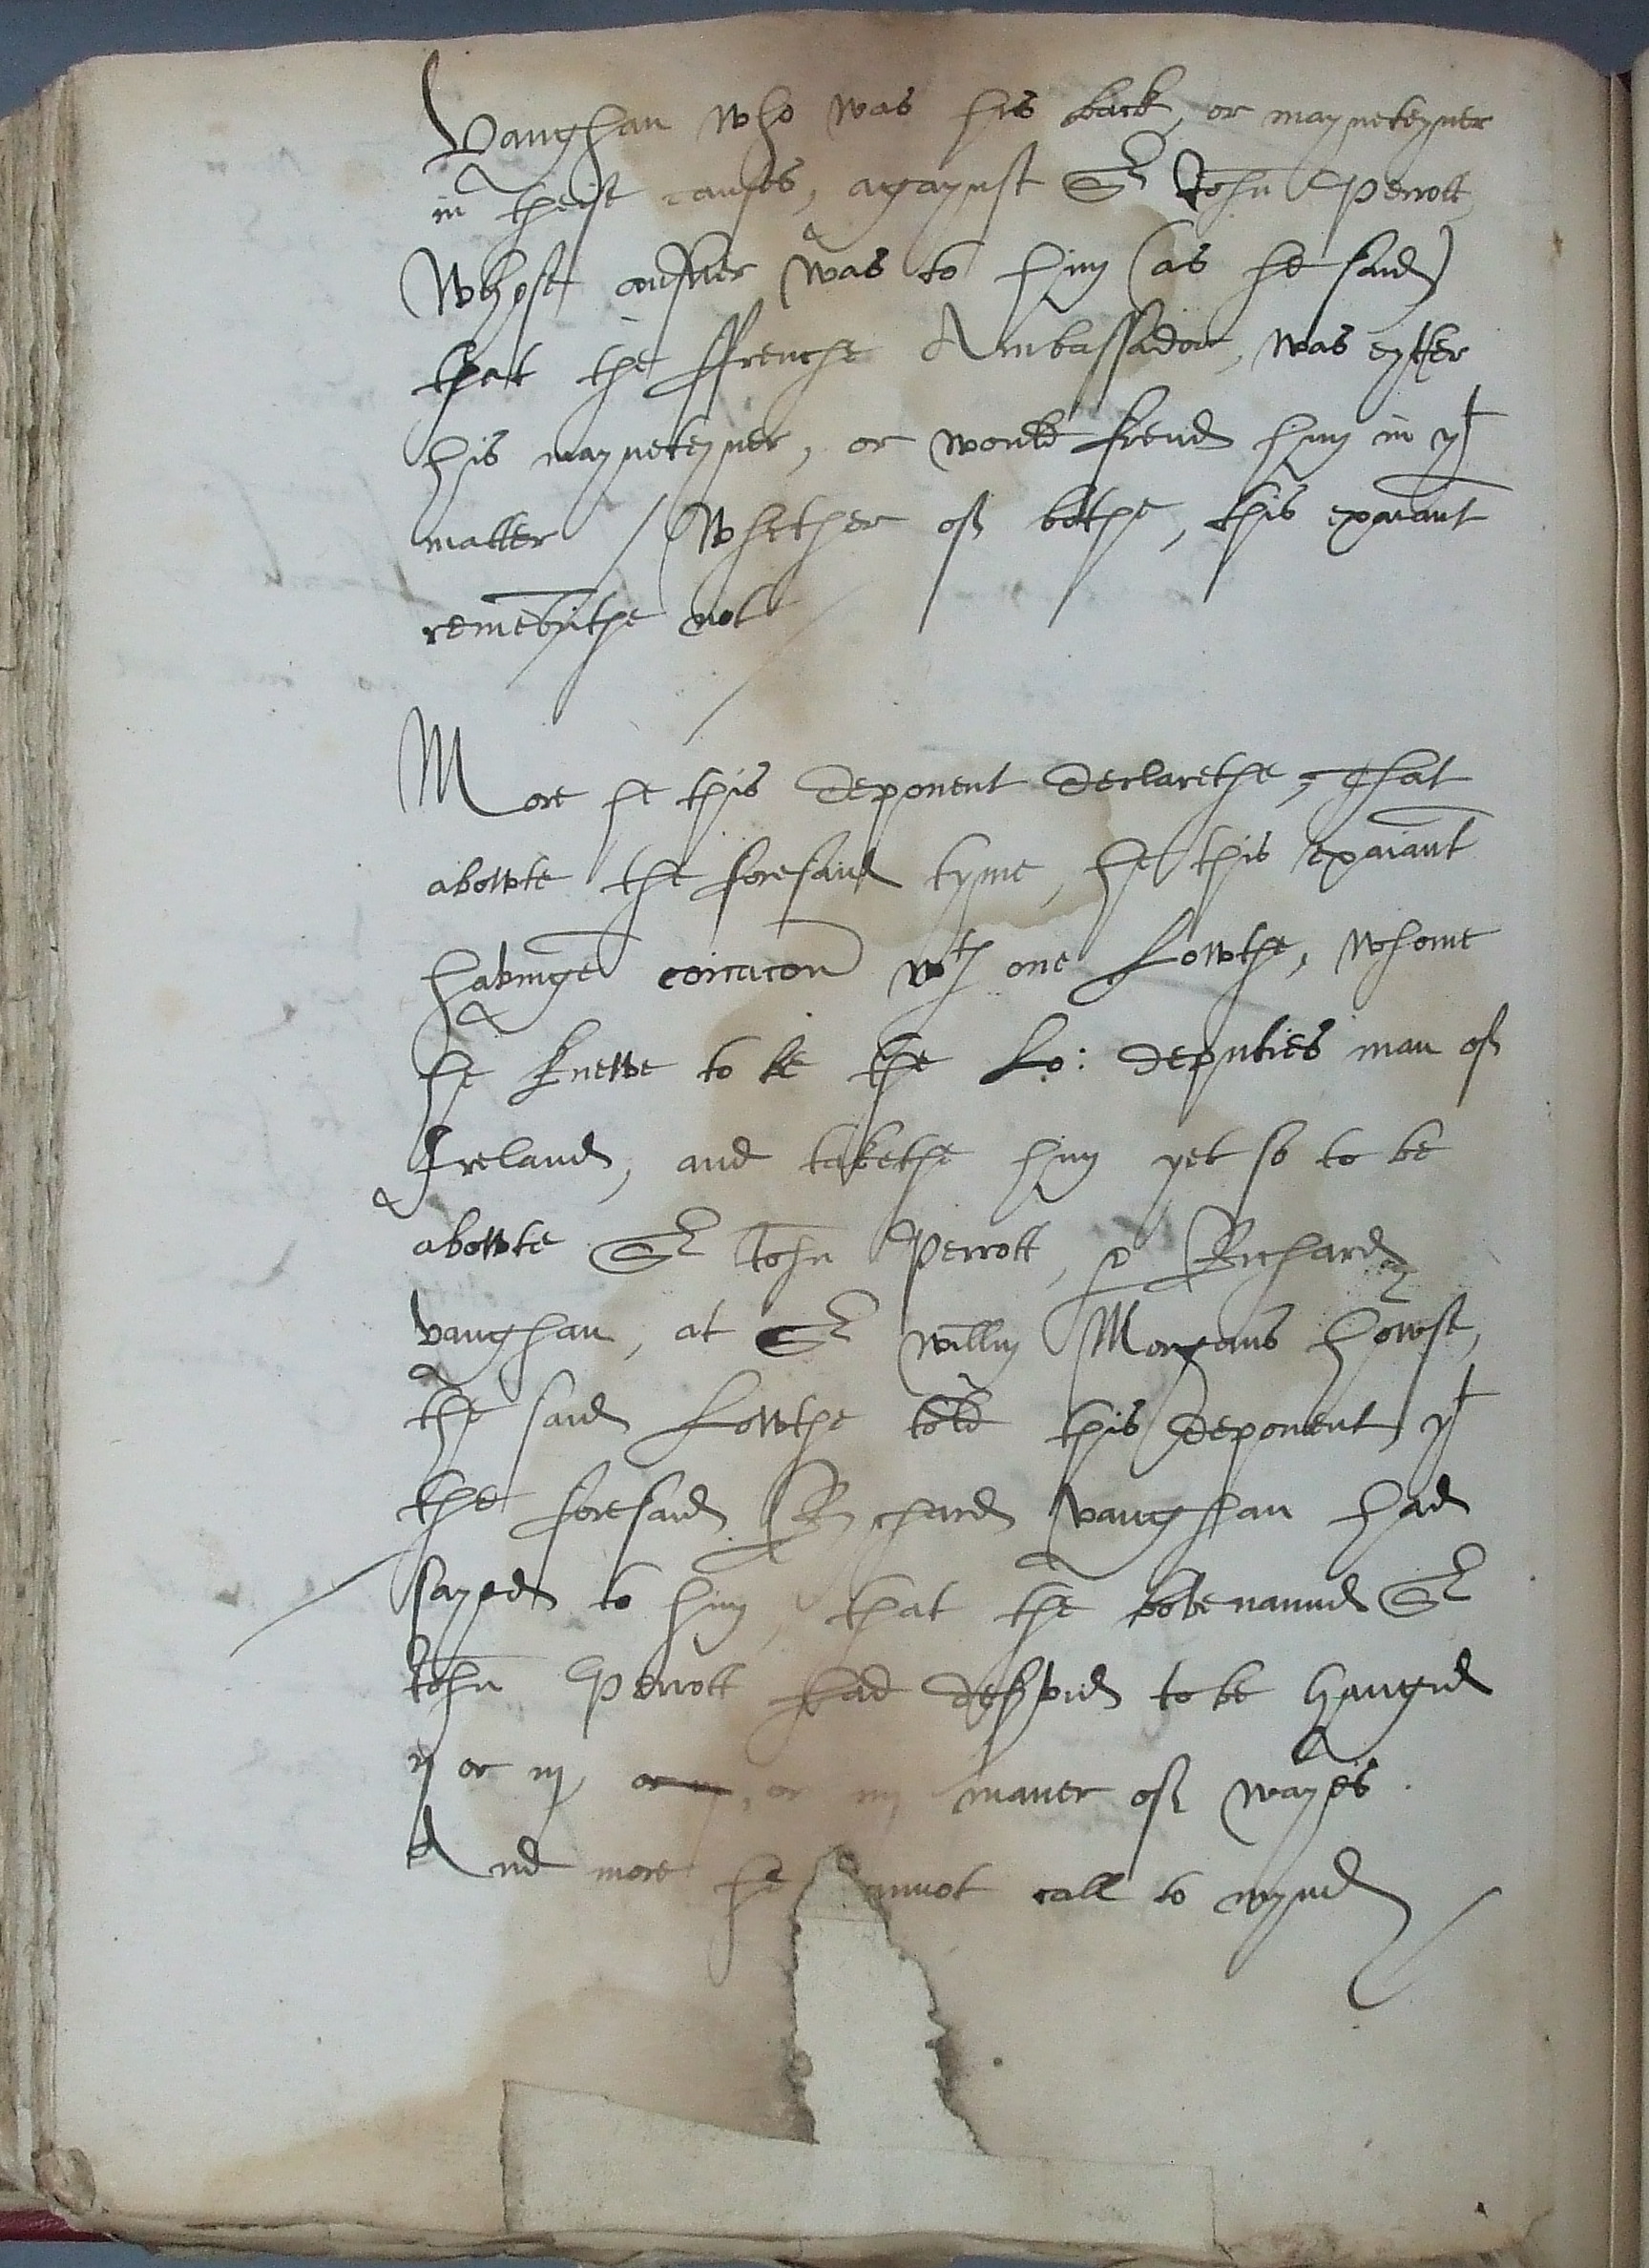 Vaughan who was his back, or mayneteyner
in theise causes, agaynst Sr John Perrott
Whose answer was to hym (as he said)
that the ffrenche Ambassador, was eyther
his mayneteyner, or would frend hym in yt
matter / Whether of bothe, this exaiant
remebrithe not
More he this deponent declarethe, That
abowte the foresaid tyme, he this exaiant
havinge coicacon wth one Lowthe, whome
he knewe to be the Lo: deputies man of
Ireland, and takethe hym yet so to be
abowte Sr John Perrott, & Richard
Vaughan, at Sr Willm Morgans howse,
the said Lowthe told this deponent yt
the foresaid Rychard Vaughan had
sayed to hym, that the bove namid Sr
John Perrott had desrvid to be hangid
ij or iij or, or iiij maner of wayes.
And more he cannot call to mynd